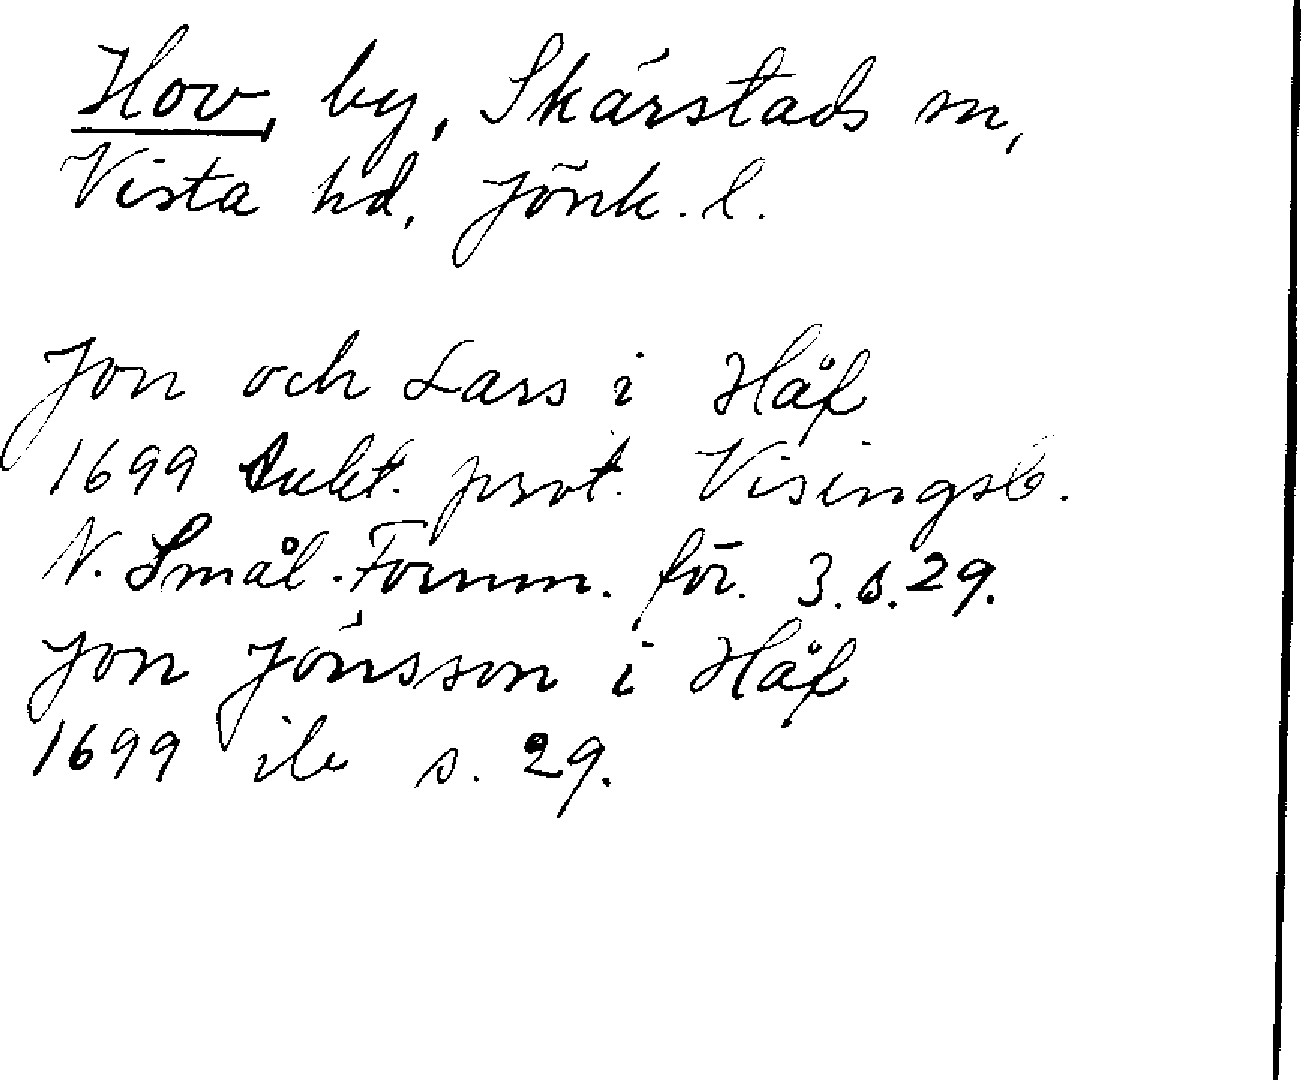 Hov, by, Skärstads sn,
Vista hd, Jönk. l.
Jon och Lars i Håf
1699 Aukt. prot. Visingsb.
N. Smål. Fornm. för. 3. s. 29.
Jon Jönsson i Håf
1699 ib s. 29.